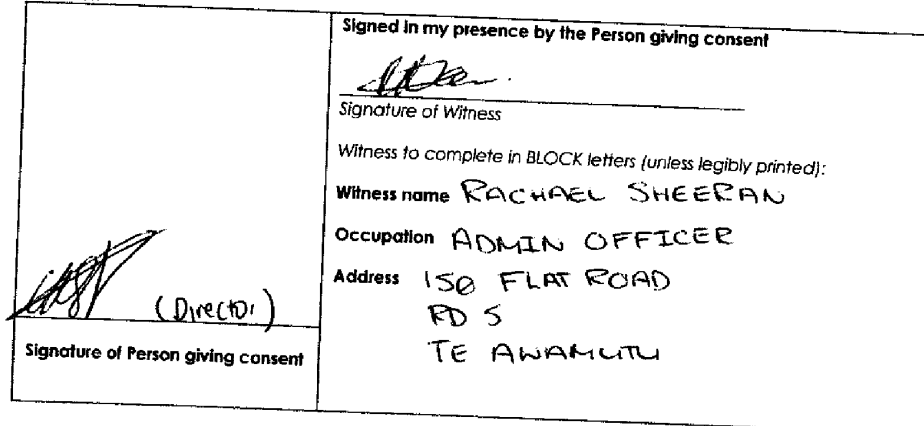 (Director)
Signature of Person giving consent
Signed in my presence by the Person giving consent
Signature of Witness
Witness to complete in BLOCK letters (unless legibly printed):
Witness name RACHAEL SHEERAN
Occupation ADMIN OFFICER
Address 150 FLAT ROAD
RD 5
TE AWAMUTU